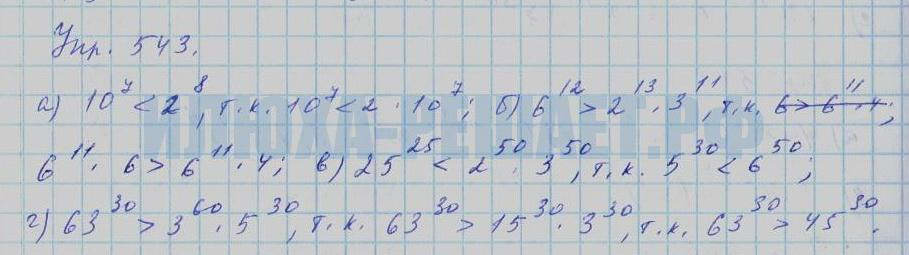 Упр. 543.
а) 10⁷ < 2⁸, т.к. 10⁷ < 2 · 10⁷; б) 6¹² > 2¹³ · 3¹¹, т.к. 6 > 6¹¹ · 4;
6¹¹ · 6 > 6¹¹ · 4; в) 25²⁵ < 2⁵⁰ · 3⁵⁰, т.к. 5³⁰ < 6⁵⁰;
г) 63³⁰ > 3⁶⁰ · 5³⁰, т.к. 63³⁰ > 15³⁰ · 3³⁰, т.к. 63³⁰ > 45³⁰.
ИЛЮХА-РЕШАЕТ.РФ